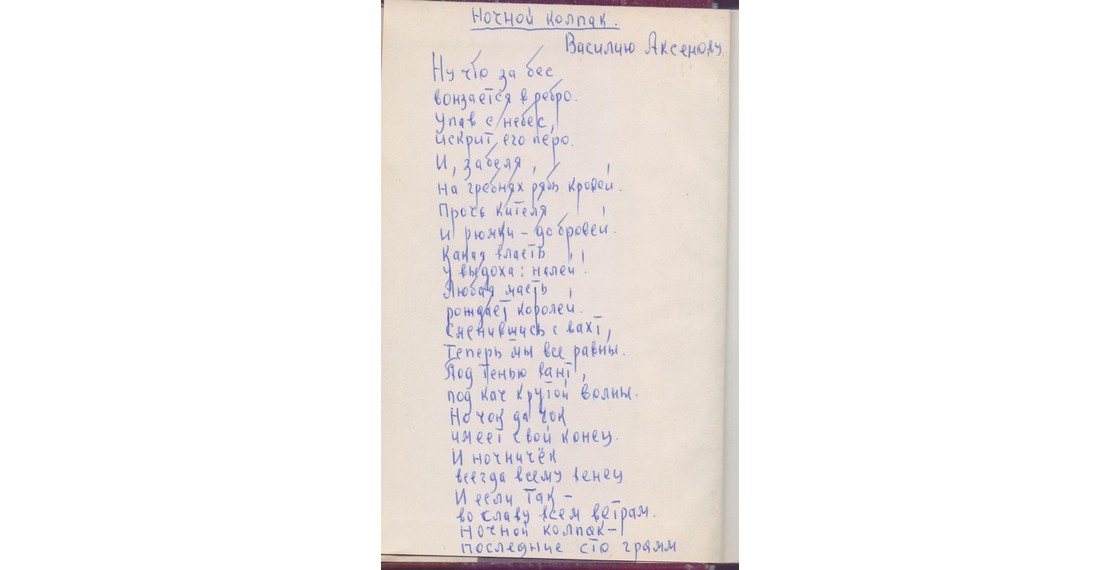 Ночной колпак.
Василию Аксенову
Ну что за бес
вонзается в ребро.
Упав с небес,
искрит его перо.
И, забеля,
на гребнях рябь кровей.
Прочь кителя
и рюмки – до бровей.
Какая власть
у выдоха: налей!
Любая масть
рождает королей.
Сменившись с вахт,
теперь мы все равны.
Под тенью вант,
под кач крутой волны.
Но чок да чок
имеет свой конец.
И ночничёк
всегда всему венец
И если так –
во славу всем ветрам.
Ночной колпак –
последние сто грамм